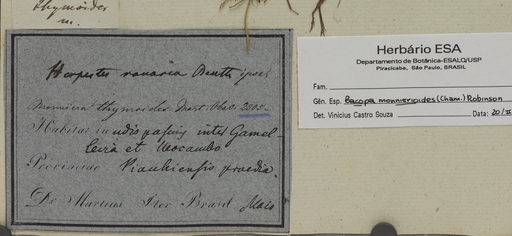 thymoides
m.
Herpestes ranaria Benth. ipse!
Monniera thymoides Mart. Obs. 2505.
Habitat in udis pascuis inter Gamel-
leira et Mocambo
Provinciae Piauhiensis praedia.
Dr. Martius Iter Brasil. Majo
Herbário ESA
Departamento de Botânica-ESALQ/USP
Piracicaba, São Paulo, BRASIL
Fam.
Gên. Esp. Bacopa monnierioides (Cham.) Robinson
Det. Vinicius Castro Souza Data: 20/